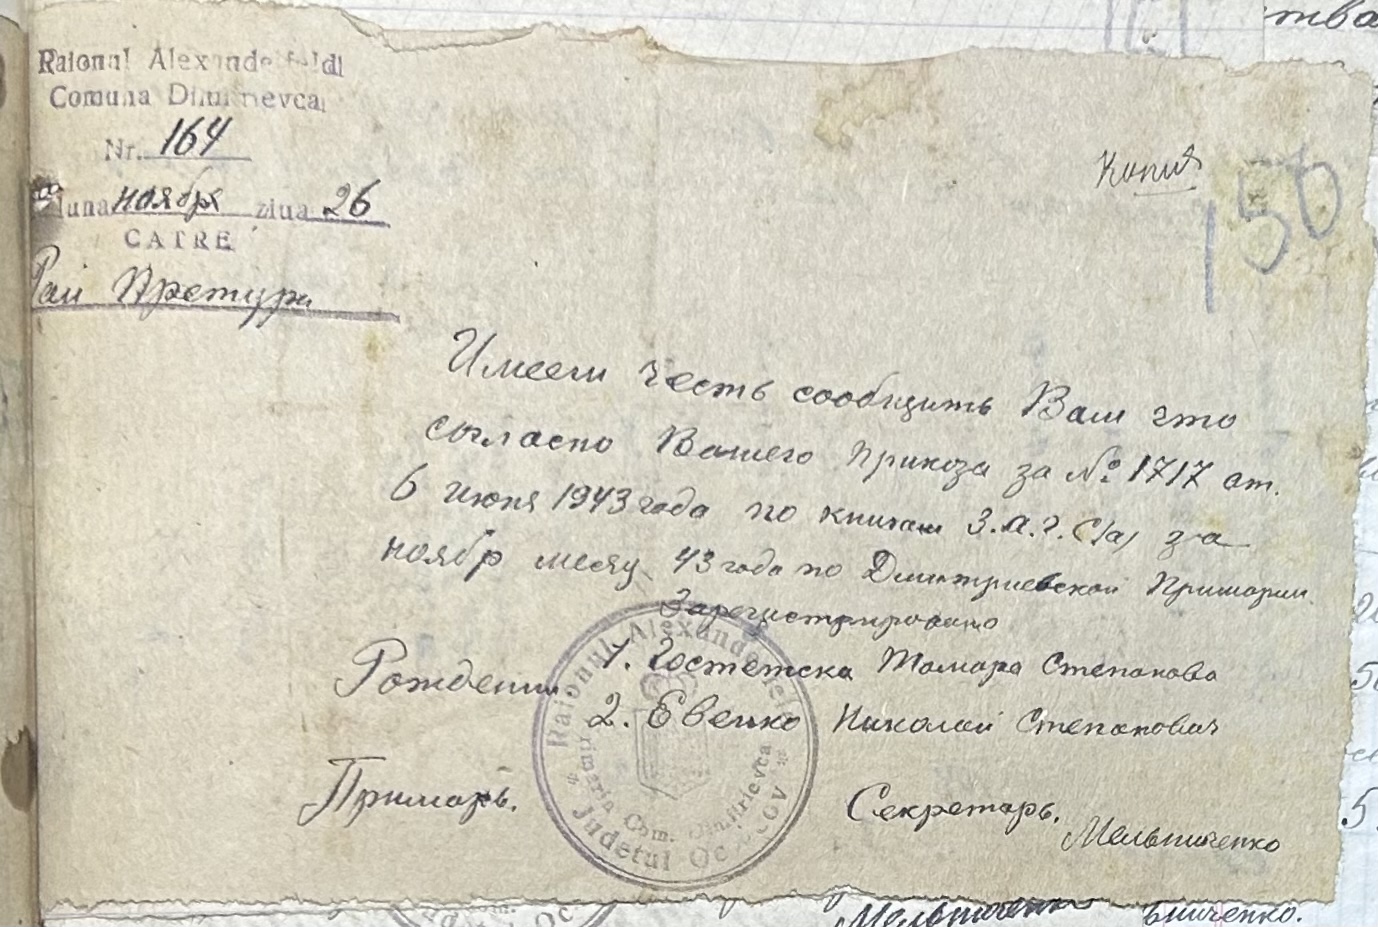 Raionul Alexanderfeld
Comuna Dimitrievca
Nr. 164
Luna ноября ziua 26
CATRE
Рай Претури
Копия
150
Имеем честь сообщить Вам что
согласно Вашего приказа за № 1717 от.
6 июня 1943 года по книгам З.А.Г.С/а, за
ноябр месяц 43 года по Дмитриевской Примарии
Зарегистрировано
Рождении 1. Гостетска Тамара Степанова
2. Евенко Николай Степанович
Примарь. Секретарь.
Мельниченко
Raionul Alexanderfeld
Primeria Com. Dimitrievca
Judetul Oceacov